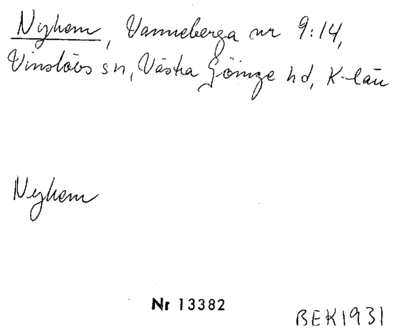 Nyhem, Vanneberga nr 9:14,
Vinslövs sn, Västra Göinge hd, K-län
Nyhem
Nr 13382
BEK1931